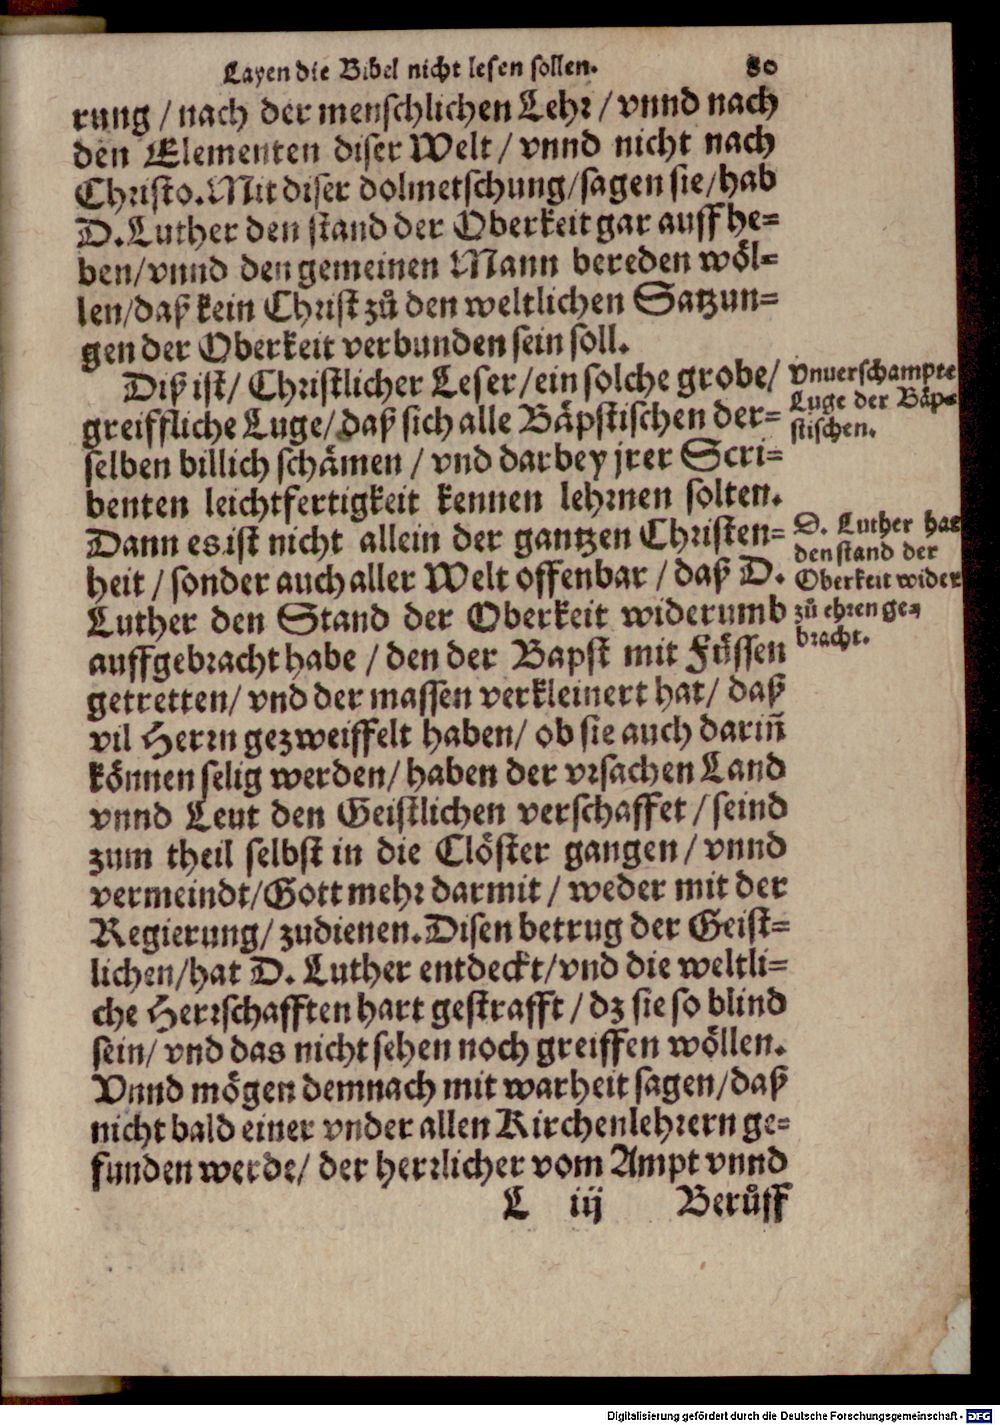 Layen die Bibel nicht lesen sollen. 80
rung / nach der menschlichen Lehr / vnnd nach
den Elementen diser Welt / vnnd nicht nach
Christo. Mit diser dolmetschung / sagen sie / hab
D. Luther den stand der Oberkeit gar auffhe=
ben / vnnd den gemeinen Mann bereden wöl=
len / daß kein Christ zů den weltlichen Satzun=
gen der Oberkeit verbunden sein soll.
Diß ist / Christlicher Leser / ein solche grobe /
greiffliche Luge / daß sich alle Bäpstischen der=
selben billich schämen / vnd darbey jrer Scri=
benten leichtfertigkeit kennen lehrnen solten.
Dann es ist nicht allein der gantzen Christen=
heit / sonder auch aller Welt offenbar / daß D.
Luther den Stand der Oberkeit widerumb
auffgebracht habe / den der Bapst mit Füssen
getretten / vnd der massen verkleinert hat / daß
vil Herrn gezweiffelt haben / ob sie auch dariñ
können selig werden / haben der vrsachen Land
vnnd Leut den Geistlichen verschaffet / seind
zum theil selbst in die Clöster gangen / vnnd
vermeindt / Gott mehr darmit / weder mit der
Regierung / zudienen. Disen betrug der Geist=
lichen / hat D. Luther entdeckt / vnd die weltli=
che Herrschafften hart gestrafft / dz sie so blind
sein / vnd das nicht sehen noch greiffen wöllen.
Vnnd mögen demnach mit warheit sagen / daß
nicht bald einer vnder allen Kirchenlehrern ge=
funden werde / der herrlicher vom Ampt vnnd
L iij Berůff
Vnuerschampte
Luge der Bäp=
stischen.
D. Luther hat
den stand der
Oberkeit wider
zů ehren ge=
bracht.
Digitalisierung gefördert durch die Deutsche Forschungsgemeinschaft - DFG